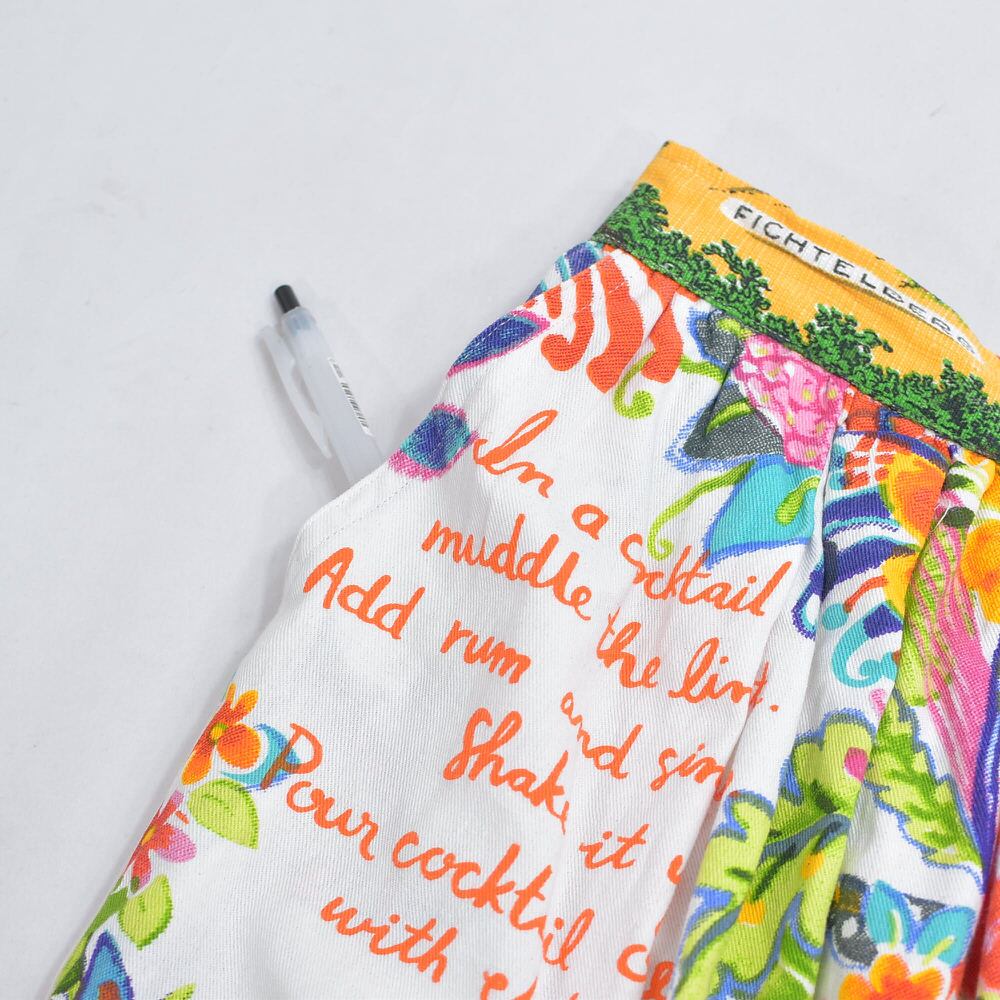 FICHTELBERG
In a cocktail
muddle the lint.
Add rum and sim
Shake it
Pour cocktail
with